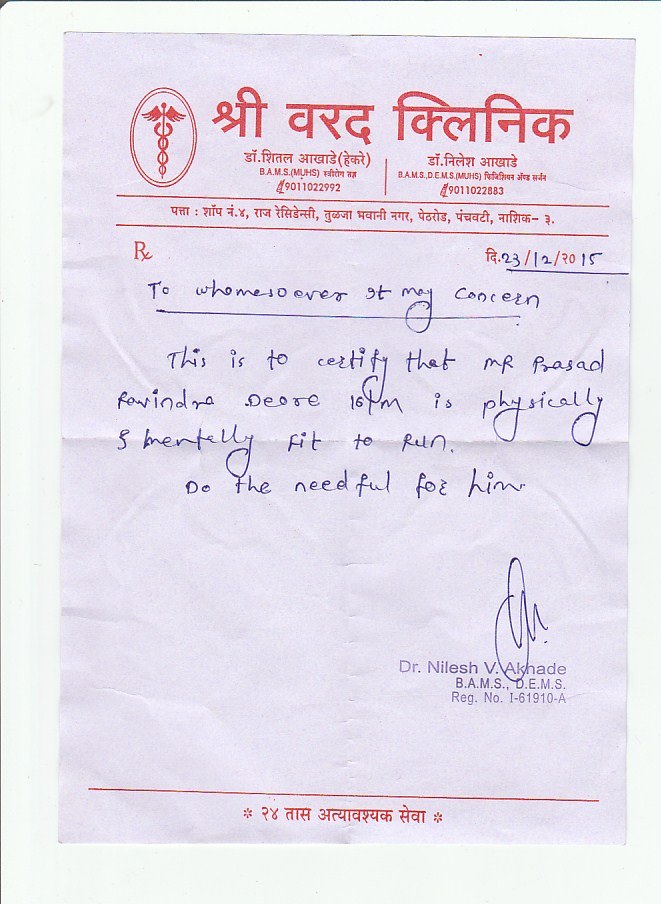 श्री वरद क्लिनिक
डॉ.शितल आखाडे(हेकरे)
B.A.M.S.(MUHS) स्त्रीरोग तज्ञ
9011022992
डॉ.निलेश आखाडे
B.A.M.S.,D.E.M.S.(MUHS) फिजिशियन ॲण्ड सर्जन
9011022883
पत्ता : शॉप नं.४, राज रेसिडेन्सी, तुळजा भवानी नगर, पेठरोड, पंचवटी, नाशिक- ३.
℞
दि.23/12/२०15
To whomesoever It may concern
This is to certify that MR Prasad
Ravindra Deore 16/M is physically
& mentally fit to Run.
Do the needful for him
Dr. Nilesh V. Akhade
B.A.M.S., D.E.M.S.
Reg. No. I-61910-A
* २४ तास अत्यावश्यक सेवा *